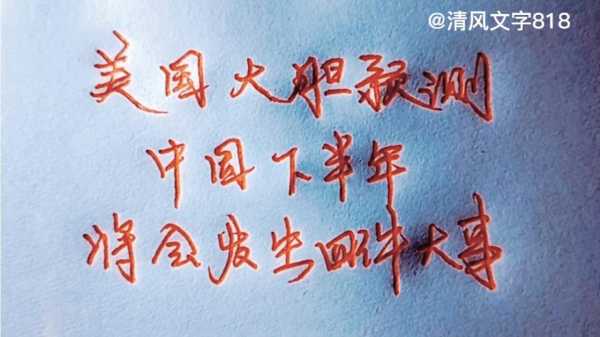 @清风文字818
美国大胆预测
中国下半年
将会发生四件大事